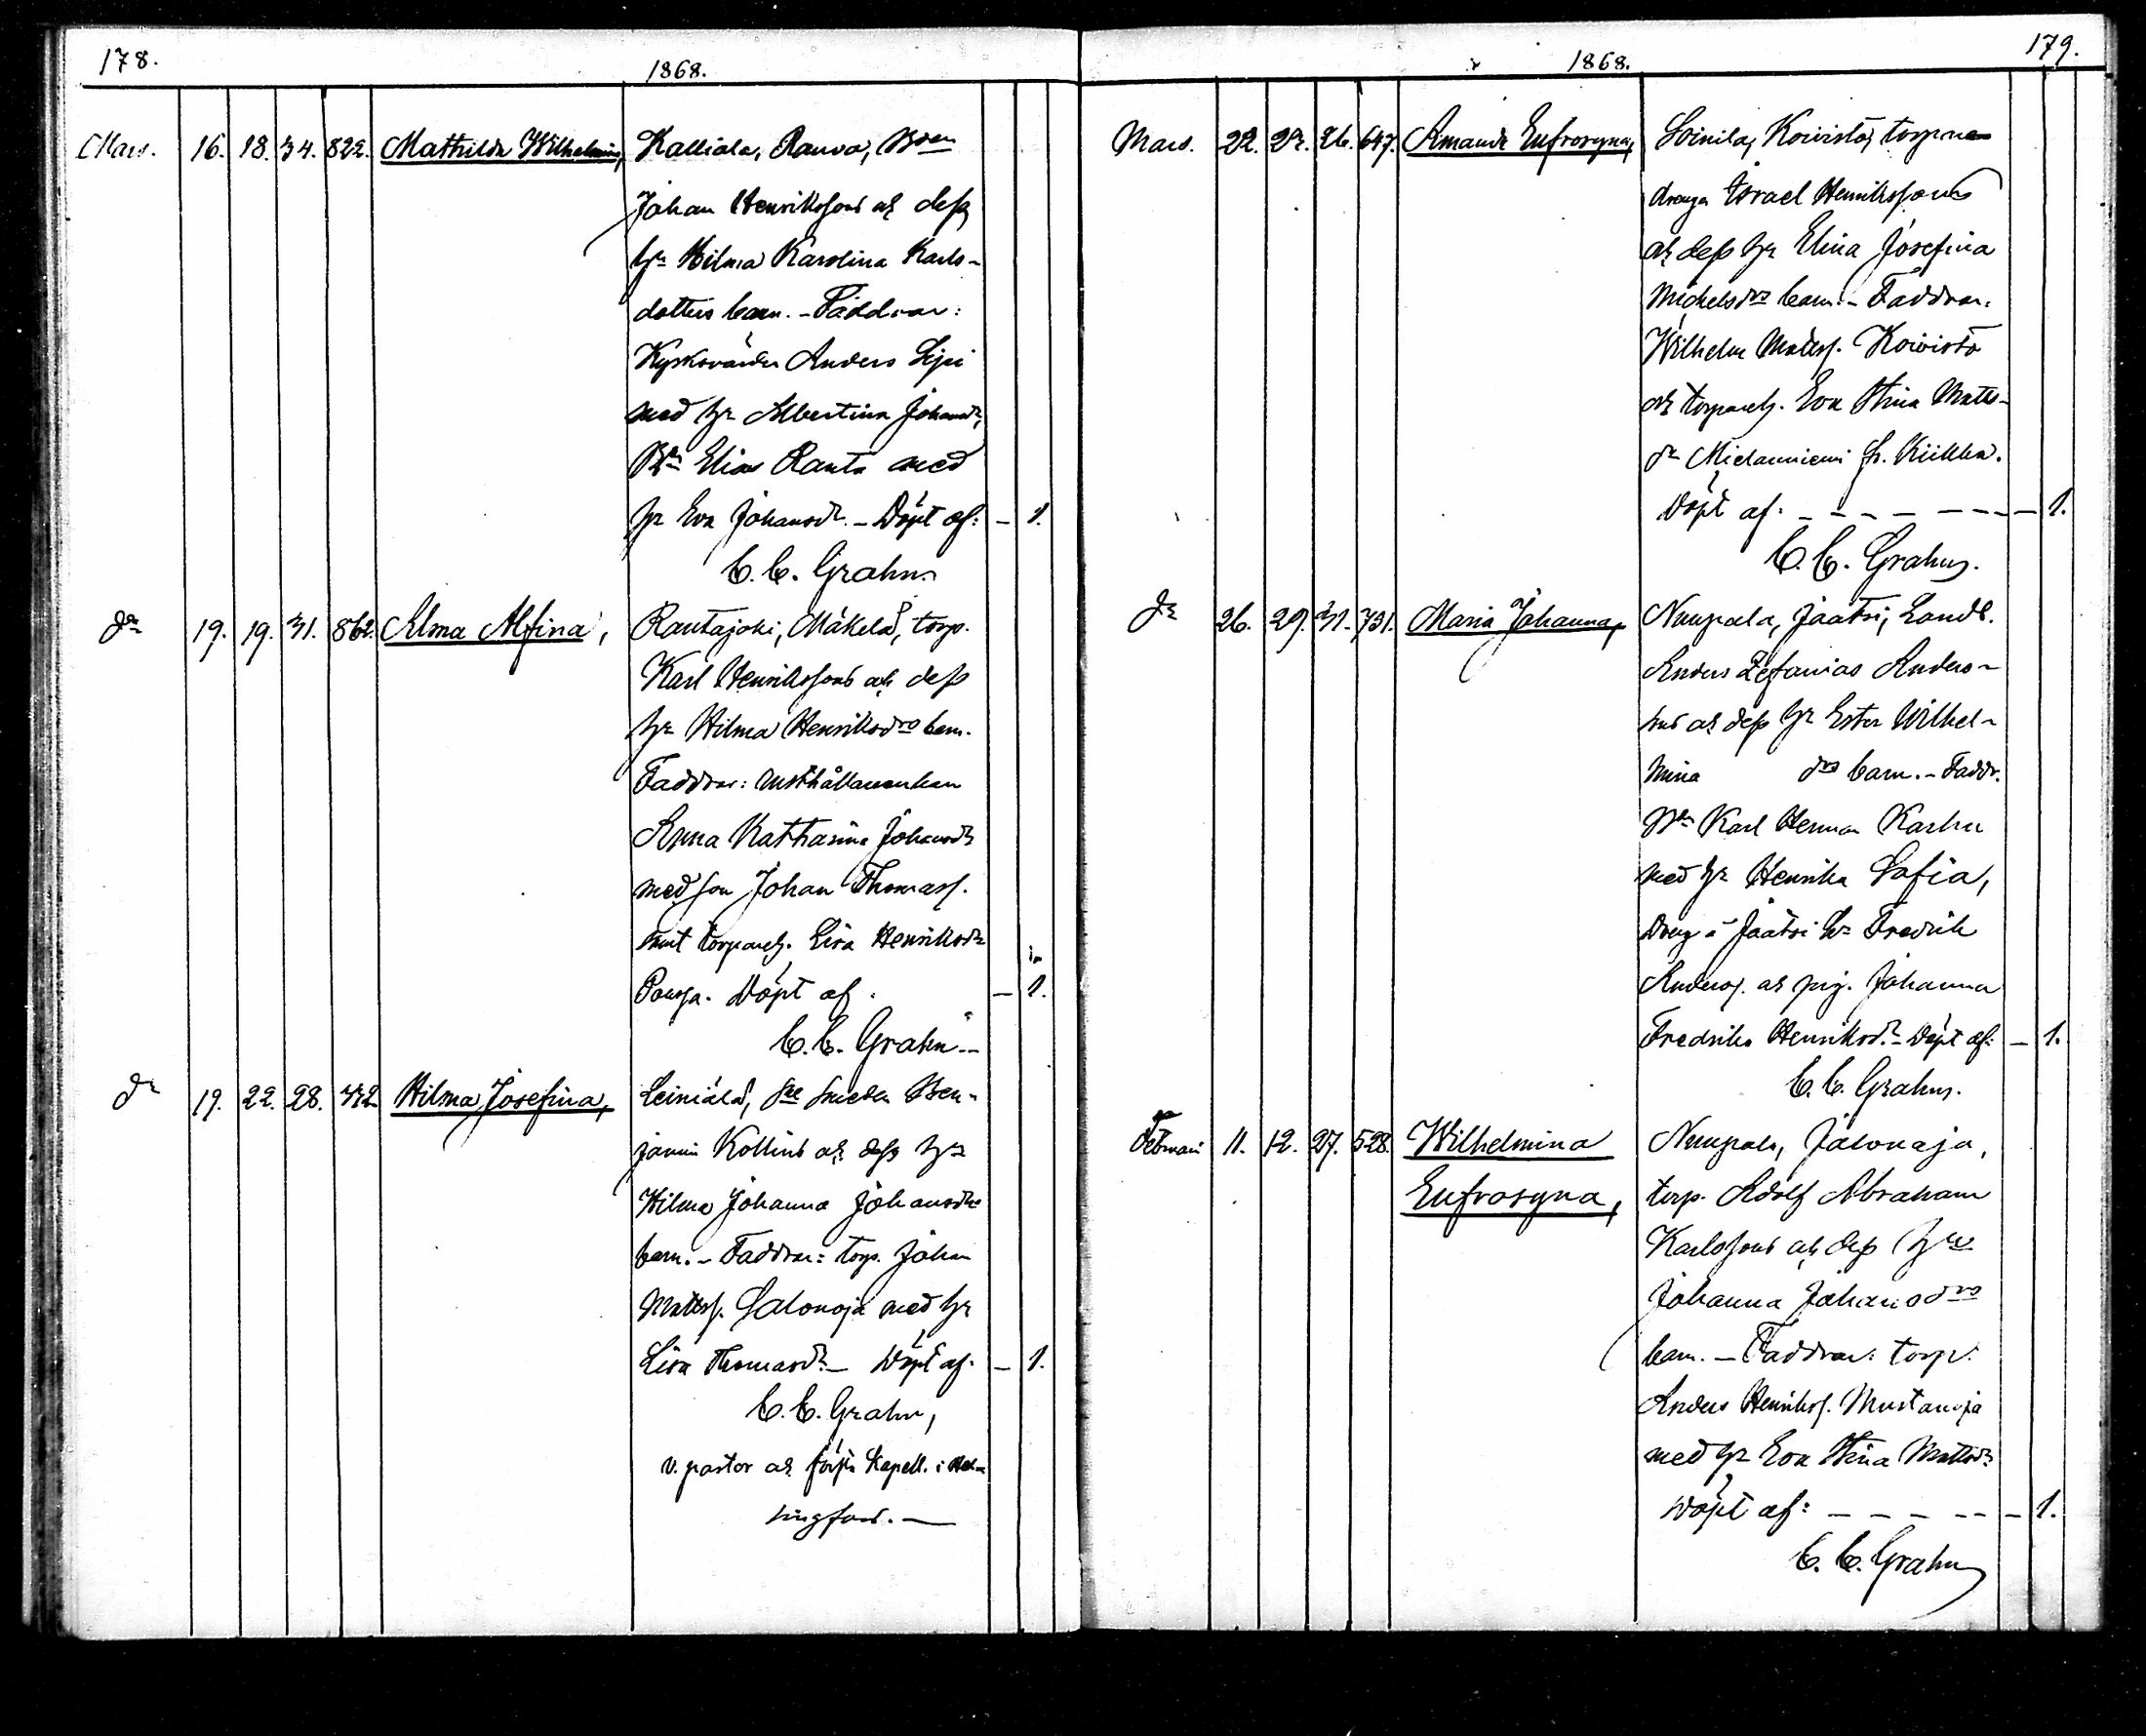 178.
1868.
Mars. 16. 18. 34. 822. Mathilda Wilhelmina, Kalliala, Rauva, Bden
Johan Henrikssons och dess
hr Hilma Karolina Karls-
dotters barn. - Faddrar:
Kyrkovärden Anders
med hr Albertina Johansdr,
Bdn Elias Ranta med
hr Eva Johansdr. - Döpt af: - 1.
C. C. Grahn.
dr 19. 19. 31. 862. Alma Alfina, Rautajoki, Mäkelä, torp.
Karl Henrikssons och dess
hr Hilma Henriksdrs barn.
Faddrar:
Anna Katharina Johansdr
med son Johan Thomass.
samt torpareh. Lisa Henriksdr
Döpt af: - 1.
C. C. Grahn.-
dr 19. 22. 28. 432 Hilma Josefina, Leiniälä, smeden Ben-
jamin Kollins och dess hrs
Hilma Johanna Johansdrs
barn. - Faddrar: torp. Johan
Matss. Salonoja med hr
Lisa Thomasdr. - Döpt af. - 1.
C. C. Grahn,
v. pastor och Kapell. i Hel-
singfors. -
179.
1868.
Mars. 22. 22. 26. 647. Amanda Eufrosyna, Soinila, Koivisto, torpare
drengen Israel Henrikssons
och dess hr Elina Josefina
Michelsdrs barn. - Faddrar:
Wilhelm Matss. Koivisto
och torpareh. Eva Stina Mats-
dr Kiikka.
Döpt af: - - - - - - - - 1.
C. C. Grahn.
dr 26. 29. 31. 731. Maria Johanna, Nuupala, Jaatsi, Landb.
Anders Zefanias Anders-
sons och dess hr Ester Wilhel-
mina drs barn. - Faddr.
Bdn Karl Herman Karhu
med hr Henrika Sofia,
Dreng å Jaatsi Fredrik
Anderss. och pig. Johanna
Fredrika Henriksdr. - Döpt af: - 1.
C. C. Grahn.
Februari 11. 12. 27. 528. Wilhelmina Nuupala, Jalonoja,
Eufrosyna, torp. Adolf Abraham
Karlssons och dess hrus
Johanna Johansdrs
barn. - Faddrar: torp.
Anders Henrikss. Mustanoja
med hr Eva Stina Matsdr.
Döpt af: - - - - - - 1.
C. C. Grahn